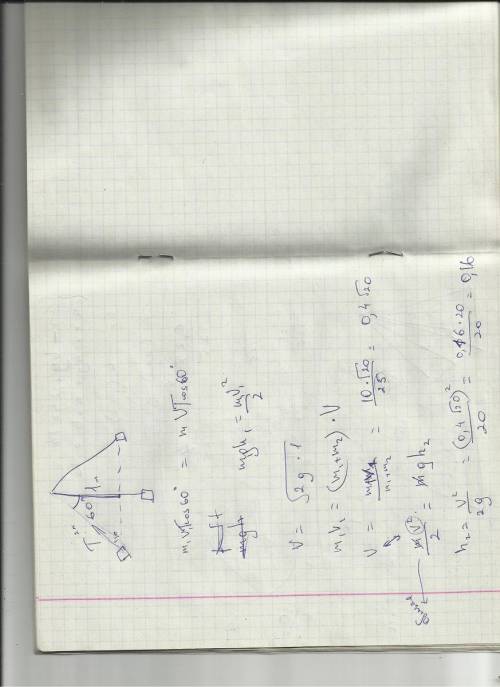 60° 1м
2м
m₁V₁cos60° = mVcos60°
mgh
mgh₁ = mV₁²/2
V = √2g·1
m₁V₁ = (m₁+m₂)·V
V = m₁V₁/m₁+m₂ = 10·√20/25 = 0,4√20
m(V²)/2 = mgh₂
h₂ = V²/2g = (0,4√20)²/20 = 0,16·20/20 = 0,16